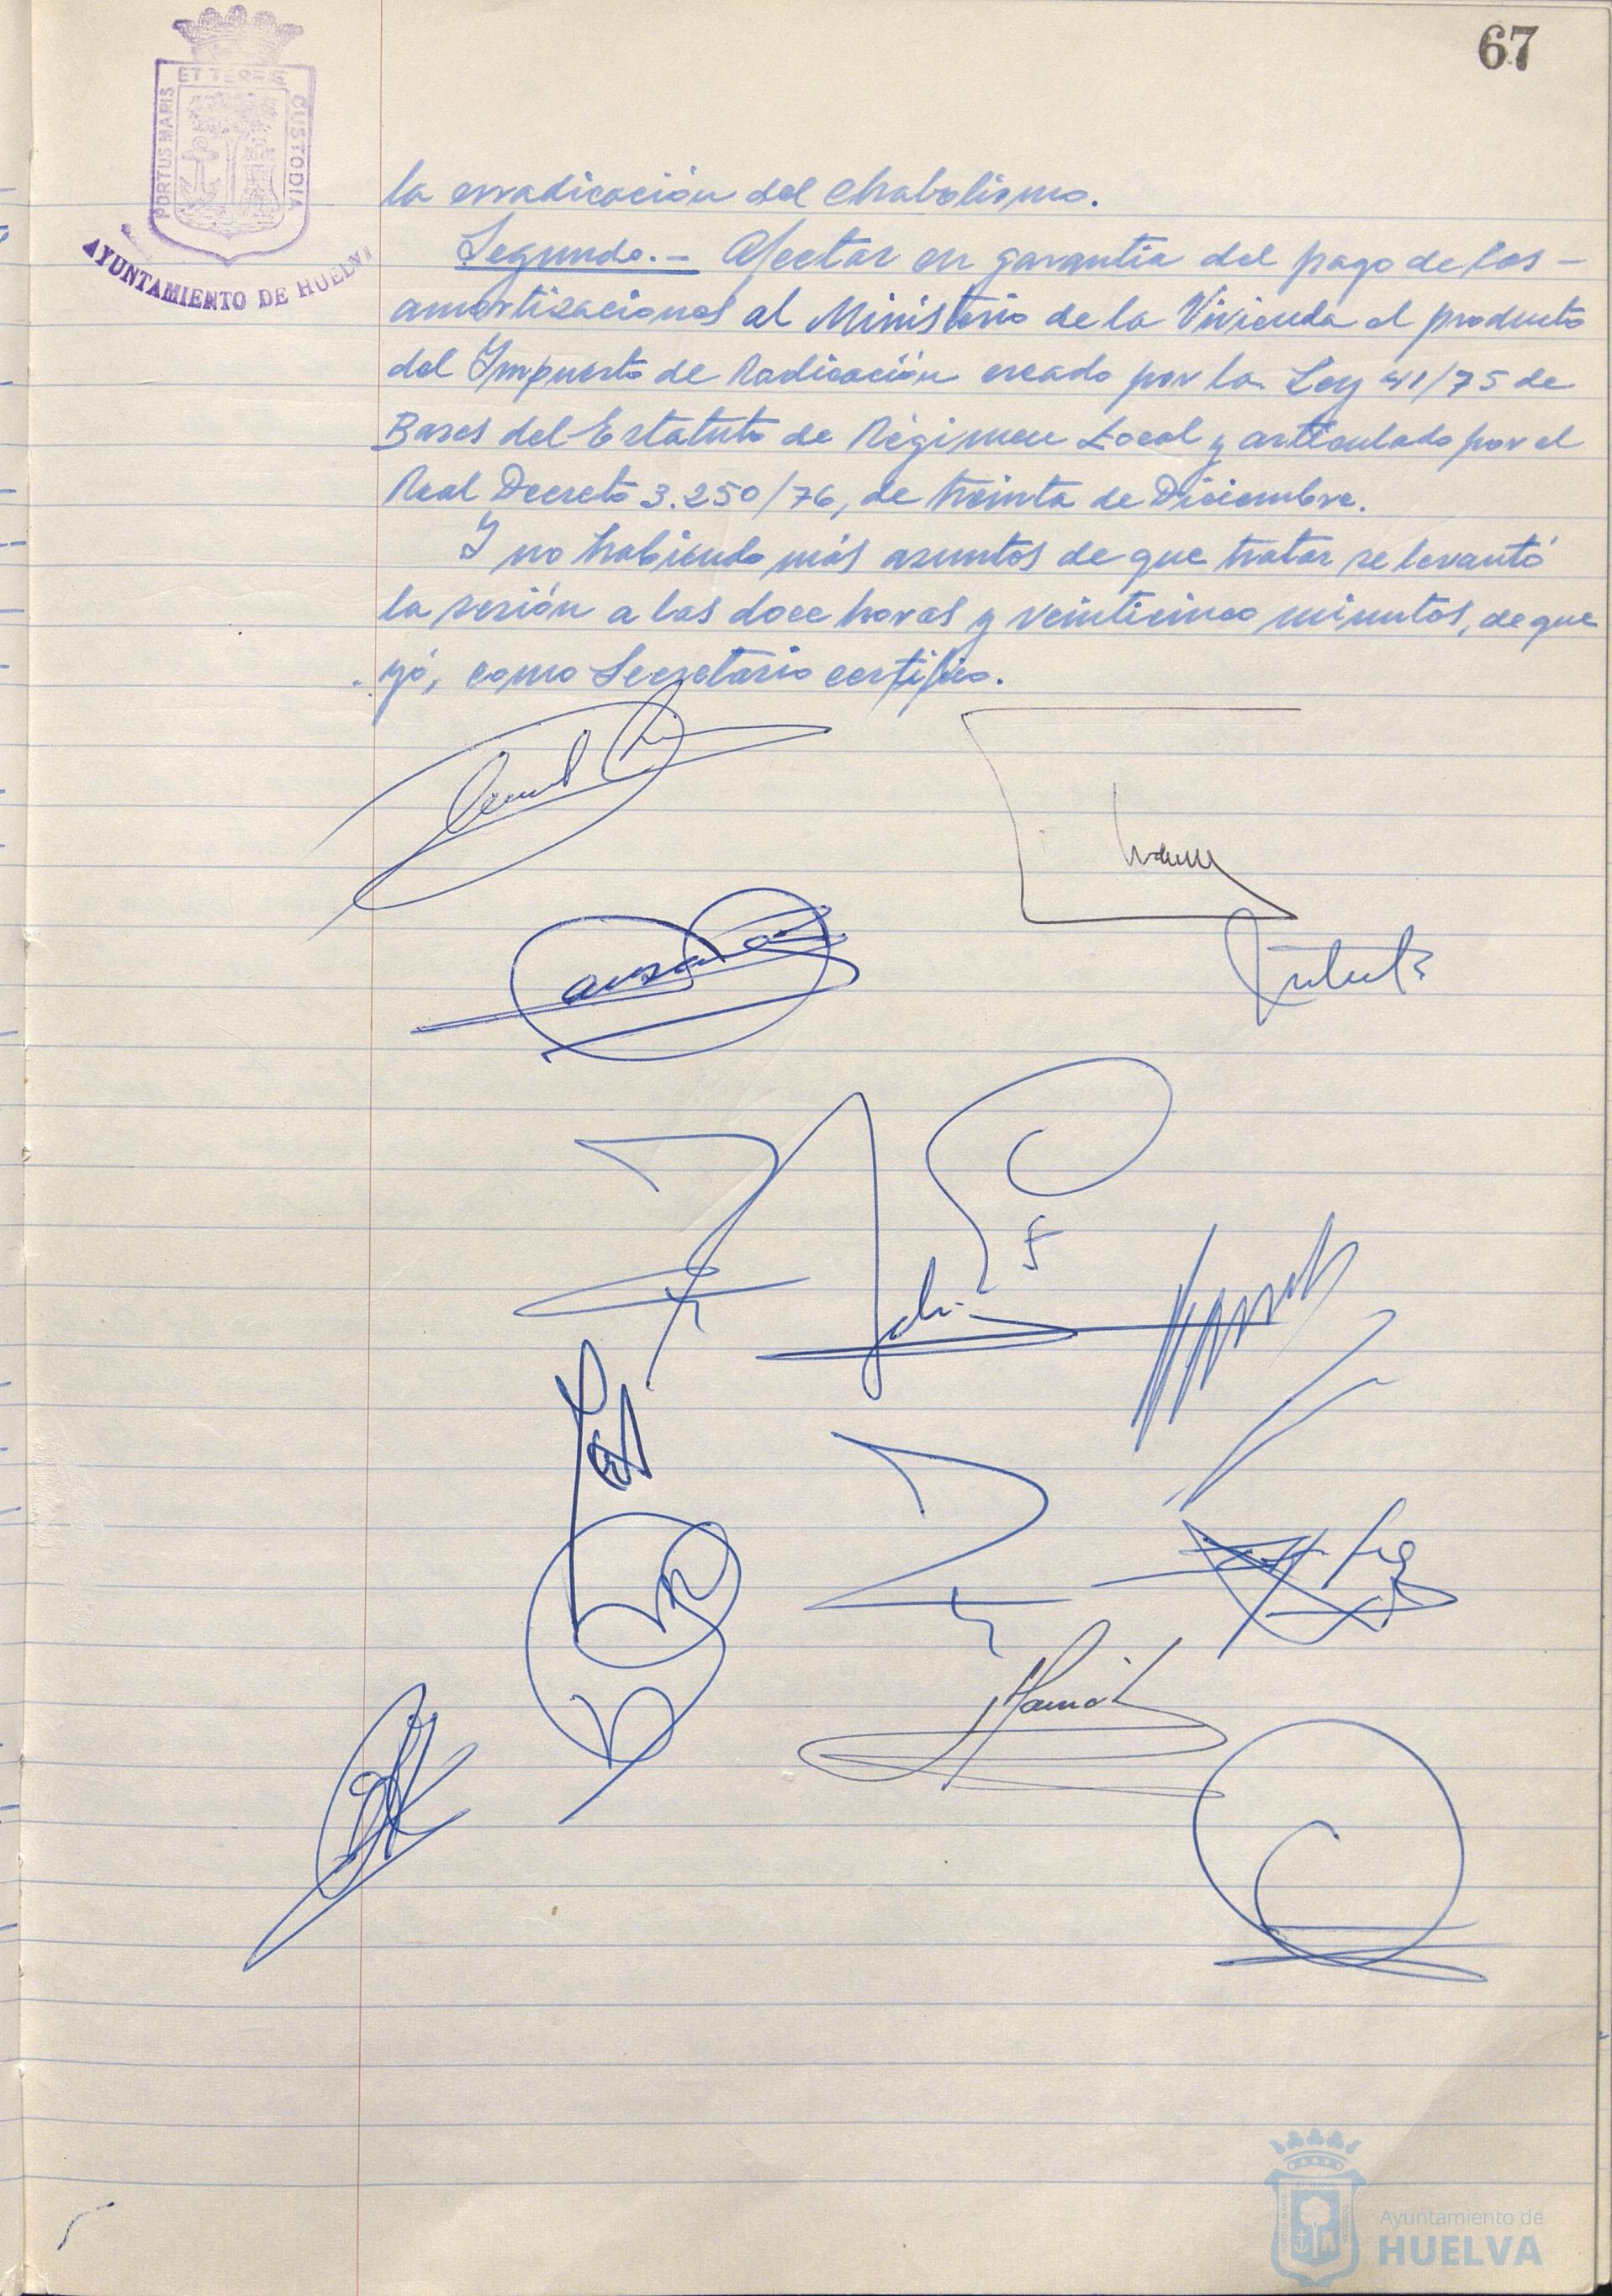 67
PORTUS MARIS ET TERRAE CUSTODIA
AYUNTAMIENTO DE HUELVA
la erradicación del Chabolismo.
Segundo.- Afectar en garantia del pago de las-
amortizaciones al Ministerio de la Vivienda el producto
del Impuesto de Radicación creado por la Ley 41/75 de
Bases del Estatuto de Régimen Local y articulado por el
Real Decreto 3.250/76, de treinta de Diciembre.
Y no habiendo más asuntos de que tratar se levantó
la sesión a las doce horas y veinticinco minutos, de que
yó, como Secretario certifico.
Ayuntamiento de
HUELVA